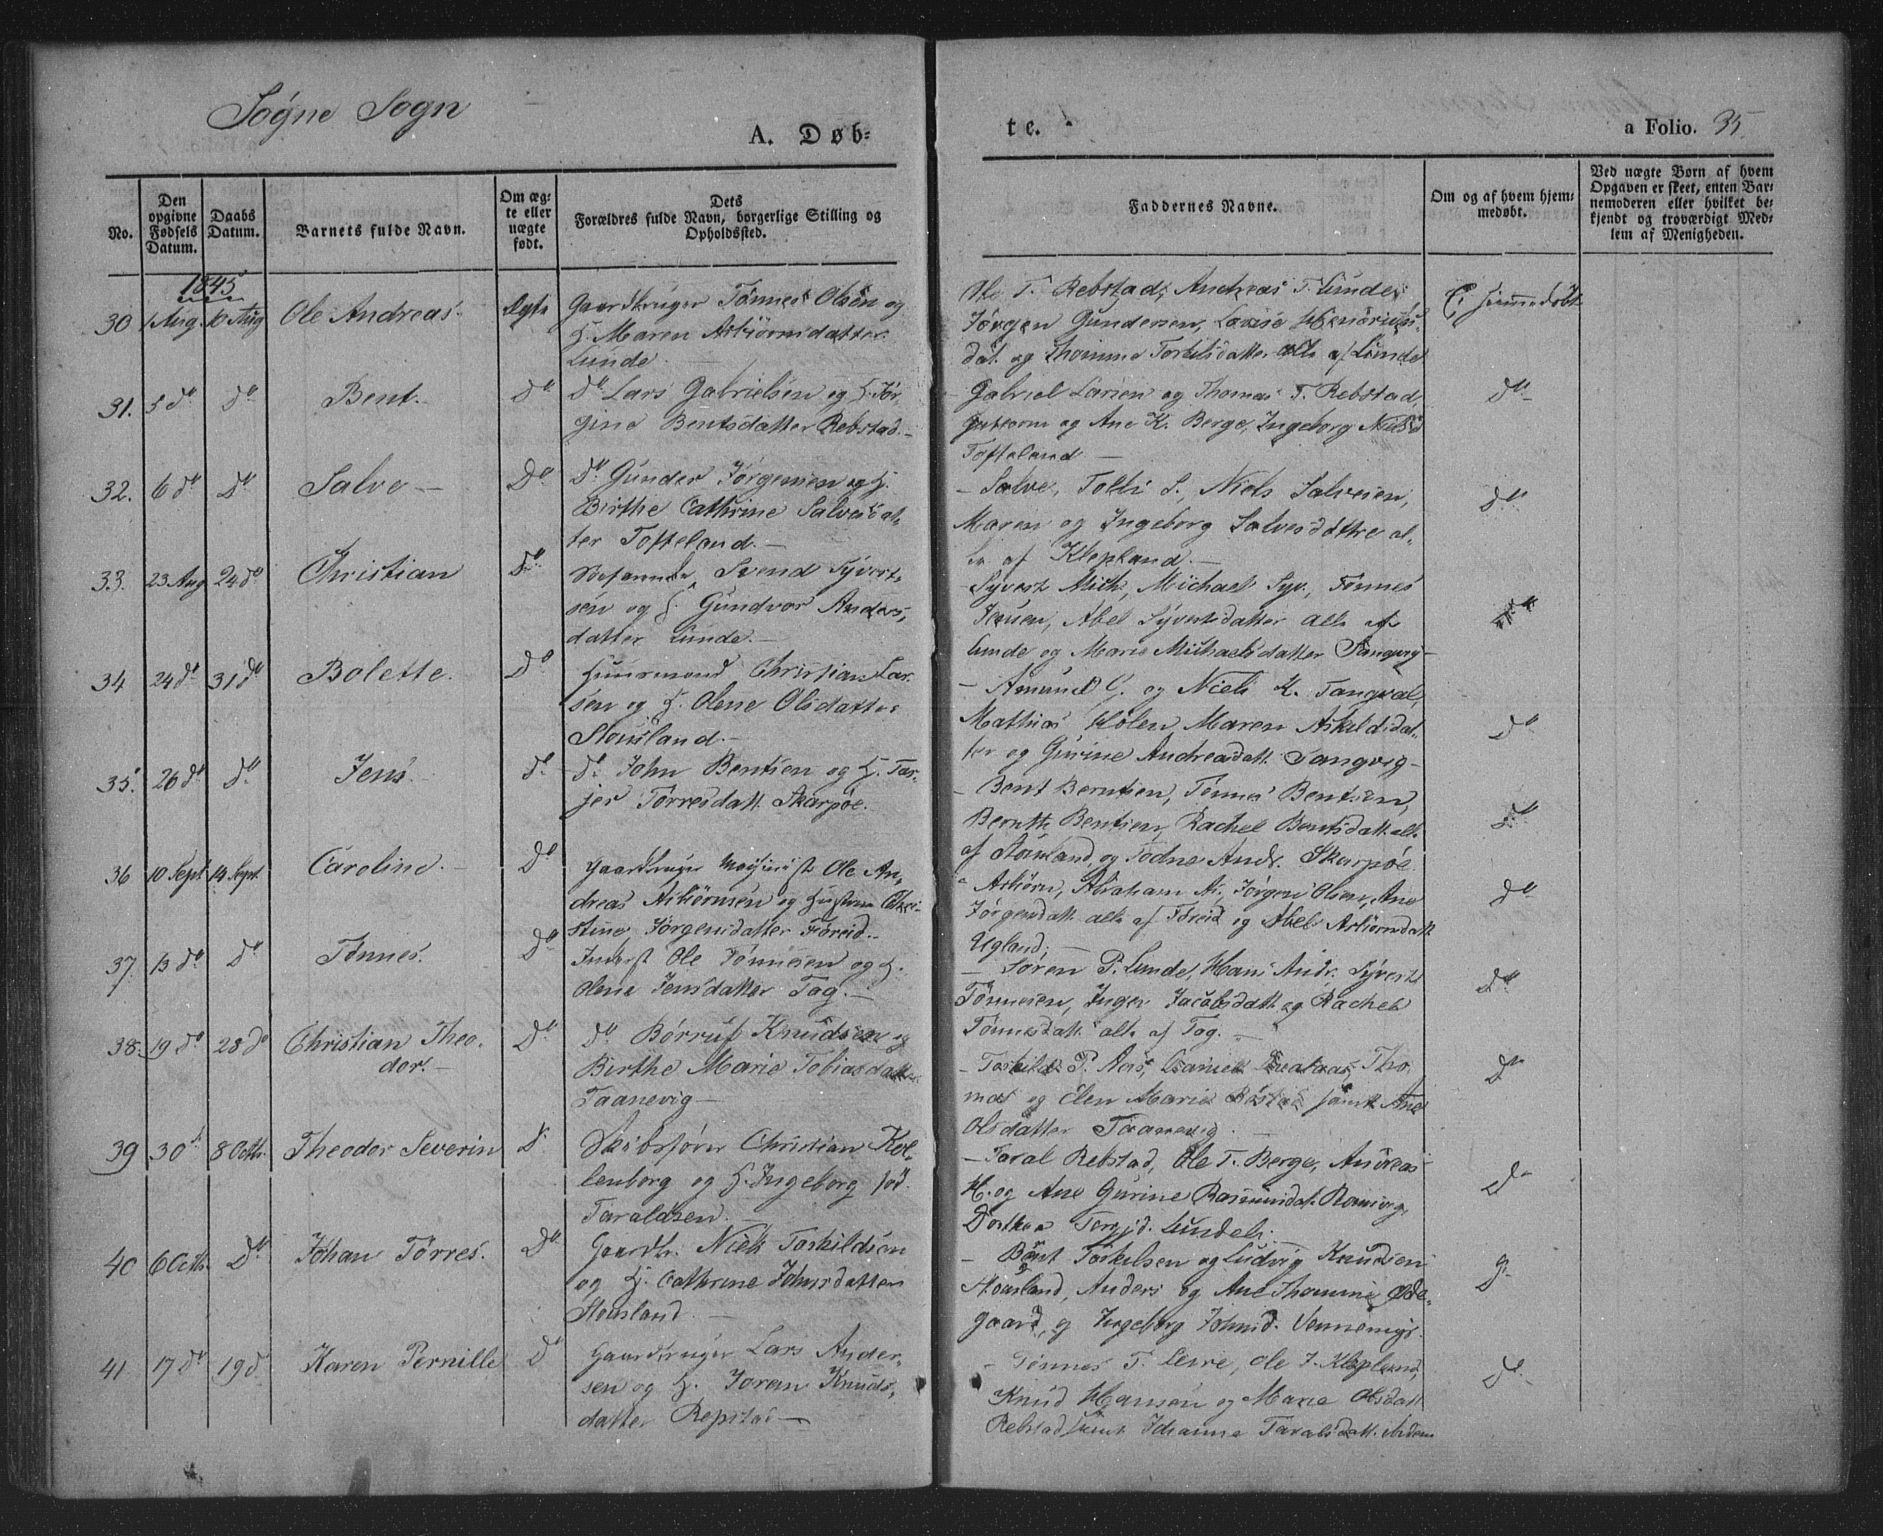 Søgne Sogn
A. Døb-
te.
a Folio. 35
No.
Den opgivne Fødsels Datum.
Daabs Datum.
Barnets fulde Navn.
Om ægte eller uægte født.
Dets Forældres fulde Navn, borgerlige Stilling og Opholdssted.
Faddernes Navne.
Om og af hvem hjemmedøbt.
Ved uægte Børn af hvem Opgaven er skeet, enten Barnemoderen eller hvilket bekjendt og troværdigt Medlem af Menigheden.
1845
30 1 Aug 10 Aug Ole Andreas. Ægte Gaardbruger Tønnes Olsen og
H. Maren Asbiörnsdatter
Lunde.
Ole T. Rebstad, Andreas T. Lunde,
Jørgen Gundersen, Lovise
dat. og Thomine Torkilsdatter alle af Lunde
Ei hjemmedøbt
31. 5 do do Bent. do do Lars Gabrielsen og H. Jør-
gine Bentsdatter Rebstad.
Gabriel Larsen og Thomas T. Rebstad,
og Ane K. Berge, Ingeborg Nielsd
Tofteland
do
32. 6 do Do Salve Do Do Gunder Jørgensen og H.
Birthe Cathrine Salvesdat-
ter Tofteland.
Salve, Tolli S., Niels Salvesen,
Maren og Ingeborg Salvesdøttre al-
le af Klepland.
do
33. 23 Aug 24 do Christian Do Svend Syvert-
sen og H. Gundvor Anders-
datter Lunde.
Syvert Mich, Michael Syv., Tønnes
Abel Syvertsdatter alle af
Lunde og Marie Michaelsdatter Tangvig
do
34 24 do 31 do Bolette. Do Huusmand Christian Lar-
sen og H. Olene Olsdatter
Stousland.
Amund G. og Niels K. Tangval,
Mathias Holen, Maren Askildsdat-
ter og Gurine Andreasdatt. Tangvig
Do
35. 26 do do Jens. do. do. John Bentsen og H. Tar-
jer Tørresdatt. Skarpöe.
Bent Berntsen, Tønnes Bentsen,
Bernth Bentsen, Rachel Bentsdatt. alle
af Stousland, og Todne Andr. Skarpöe.
do
36 10 Sept 14 Sept Caroline. Do Gaardbruger Ole An-
dreas Asbiörnsen og Hustrue Chri-
stine Jørgensdatter Føreid.
Asbiörn, Abraham As., Jørgen Olsen, Ane
Jørgensdatt. alle af Føreid og Abel Asbiörnsdatt.
Ugland.
do
37. 13 do Do Tønnes. Do Inderst Ole Tønnesen og H.
Olene Jensdatter Tag.
Søren P. Lunde, Hans Andr. Syvert
Tønnesen, Inger Jacobsdatt. og Rachel
Tønnesdatt. alle af Tag.
do
38. 19 do 28 do Christian Theo-
dor. Do do Børruf Knudsen og
Birthe Marie Tobiasdatter
Taanevig
Torkild P. Aas, Daniel Thomas, Tho-
mas og Elen Marie samt Ane
Olsdatter Taanevig.
Do
39 30 8 Octbr. Theodor Severin D. Skibsfører Christian Kal-
lenborg og H. Ingeborg fød
Taraldsen.
Taral Rebstad, Ole T. Berge, Andreas
H. og Ane Gurine Rasmusdat. Romsvig,
Dorthea Torgjd. Lunde.
Do
40 6 Octb. Do. Johan Tørres. Do Gaardbr. Niels Torkildsen
og H. Cathrine Johnsdatter
Stousland.
Bent Torkelsen og Ludvig Knudsen
Stousland, Anders og Ane Thomine Ode-
gaard, og Ingeborg Johnsd. Vennemyr.
41 17 do 19 d Karen Pernille Do Gaardbruger Lars Ander-
sen og H. Joran Knuds-
datter Repstad
Tønnes T. Leire, Ole J. Klepland,
Knud Hansen og Marie Olsdatt
Rebstad, samt Johanne Taralsdatt.
do